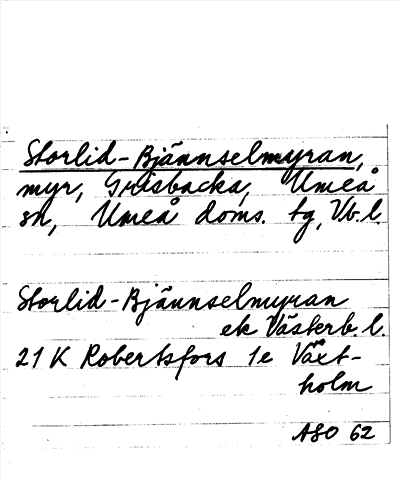 Storlid-Bjännselmyran,
myr, Grisbacka, Umeå
sn, Umeå doms. tg, Vb. l.
Storlid-Bjännselmyran
ek Västerb. l.
21 K Robertsfors 1e Växt-
holm
ASO 62